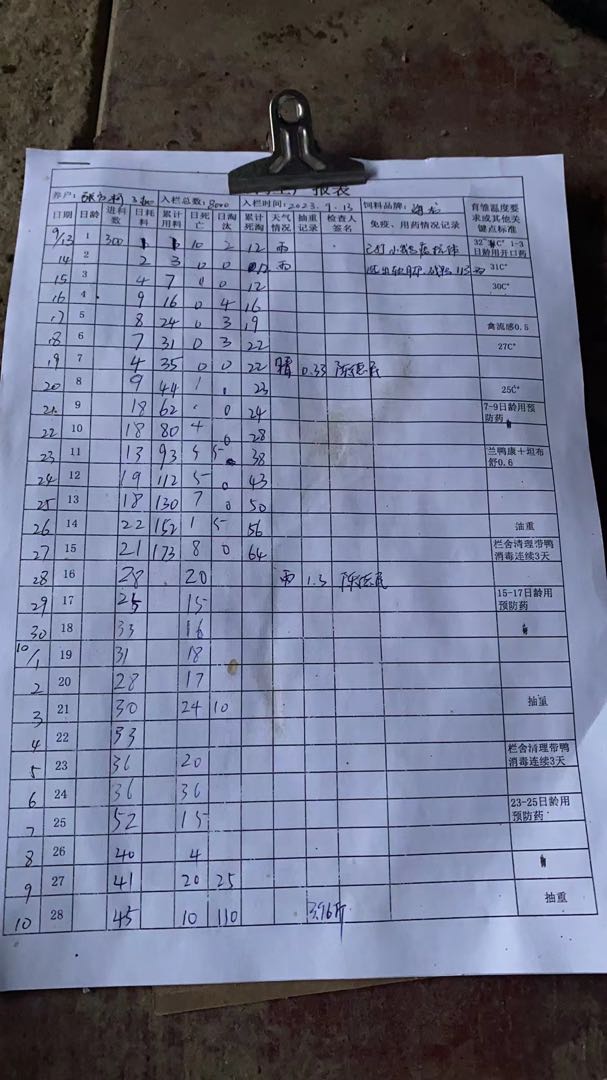 报表
养户: 入栏总数: 8000 入栏时间: 2023.9.13 饲料品牌: 育雏温度要求或其他关键点标准
日期 日龄 进料数 日耗料 累计用料 日死亡 日淘汰 累计死淘 天气情况 抽重记录 检查人签名 免疫、用药情况记录
9/13 1 300 1 1 10 2 12 雨 1-3日龄用开口药
14 2 2 3 0 0 12 雨 31C°
15 3 4 7 0 0 12 30C°
16 4 9 16 0 4 16
17 5 8 24 0 3 19 禽流感0.5
18 6 7 31 0 3 22 27C°
19 7 4 35 0 0 22 晴 0.33
20 8 9 44 1 23 25C°
21 9 18 62 0 24 7-9日龄用预防药
22 10 18 80 4 0 28
23 11 13 93 5 5 38 兰鸭康+坦布舒0.6
24 12 19 112 5 0 43
25 13 18 130 7 0 50
26 14 22 152 1 5 56 油重
27 15 21 173 8 0 64 栏舍清理带鸭消毒连续3天
28 16 28 20 雨 1.3
29 17 25 15 15-17日龄用预防药
30 18 33 16
10/1 19 31 18
2 20 28 17
3 21 30 24 10 抽重
4 22 33
5 23 36 20 栏舍清理带鸭消毒连续3天
6 24 36 36
7 25 52 15 23-25日龄用预防药
8 26 40 4
9 27 41 20 25
10 28 45 10 110 3.96斤 抽重